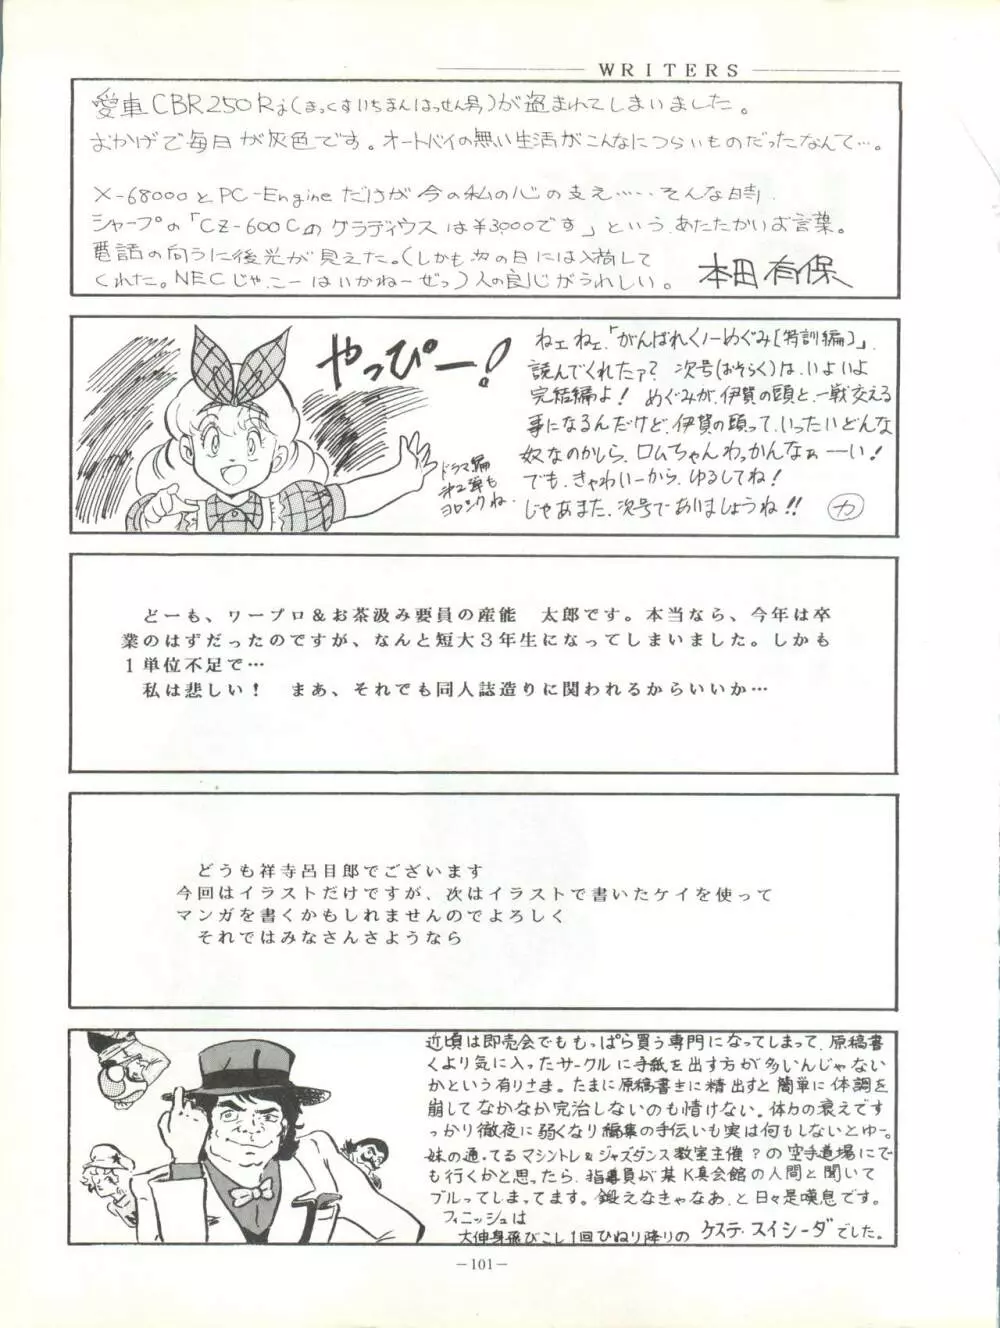 WRITERS
愛車CBR250Rj(まっくすいちまんはっせん号)が盗まれてしまいました。
おかげで毎日が灰色です。オートバイの無い生活がこんなにつらいものだったなんて…。
X-68000とPC-Engineだけが今の私の心の支え……そんな時、
シャープの「CZ-600Cのグラディウスは¥3,000です」という、あたたかいお言葉。
電話の向うに後光が見えた。(しかも次の日には入荷して
くれた。NECじゃ、こーはいかねーぜっ)人の良心がうれしい。 本田有保
やっぴー!
ドラマ編
オ2弾も
ヨロシクね。
ねェねェ、「がんばれくノ一めぐみ[特訓編]」、
読んでくれたァ? 次号(おそらく)は、いよいよ
完結編よ! めぐみが、伊賀の頭と、一戦交える
事になるんだけど、伊賀の頭って、いったいどんな
奴なのかしら、ロムちゃんわっかんなぁーい!
でも、きゃわいーから、ゆるしてね!
じゃあまた、次号であいましょうね!! カ
どーも、ワープロ&お茶汲み要員の産能 太郎です。本当なら、今年は卒
業のはずだったのですが、なんと短大3年生になってしまいました。しかも
1単位不足で…
私は悲しい! まあ、それでも同人誌造りに関われるからいいか…
どうも祥寺呂目郎でございます
今回はイラストだけですが、次はイラストで書いたケイを使って
マンガを書くかもしれませんのでよろしく
それではみなさんさようなら
近頃は即売会でももっぱら買う専門になってしまって、原稿書
くより気に入ったサークルに手紙を出す方が多いんじゃない
かという有りさま。たまに原稿書きに精出すと簡単に体調を
崩してなかなか完治しないのも情けない。体力の衰えですっ
かり徹夜に弱くなり編集の手伝いも実は何もしないとゆー。
妹の通ってるマシントレ&ジャズダンス教室主催?の空手道場にで
も行くかと思ったら、指導員が某K真会館の人間と聞いて
ブルってしまってます。鍛えなきゃなあ、と日々是嘆息です。
フィニッシュは
大伸身飛びこし1回ひねり降りの ケステ・スイシーダでした。
－101－